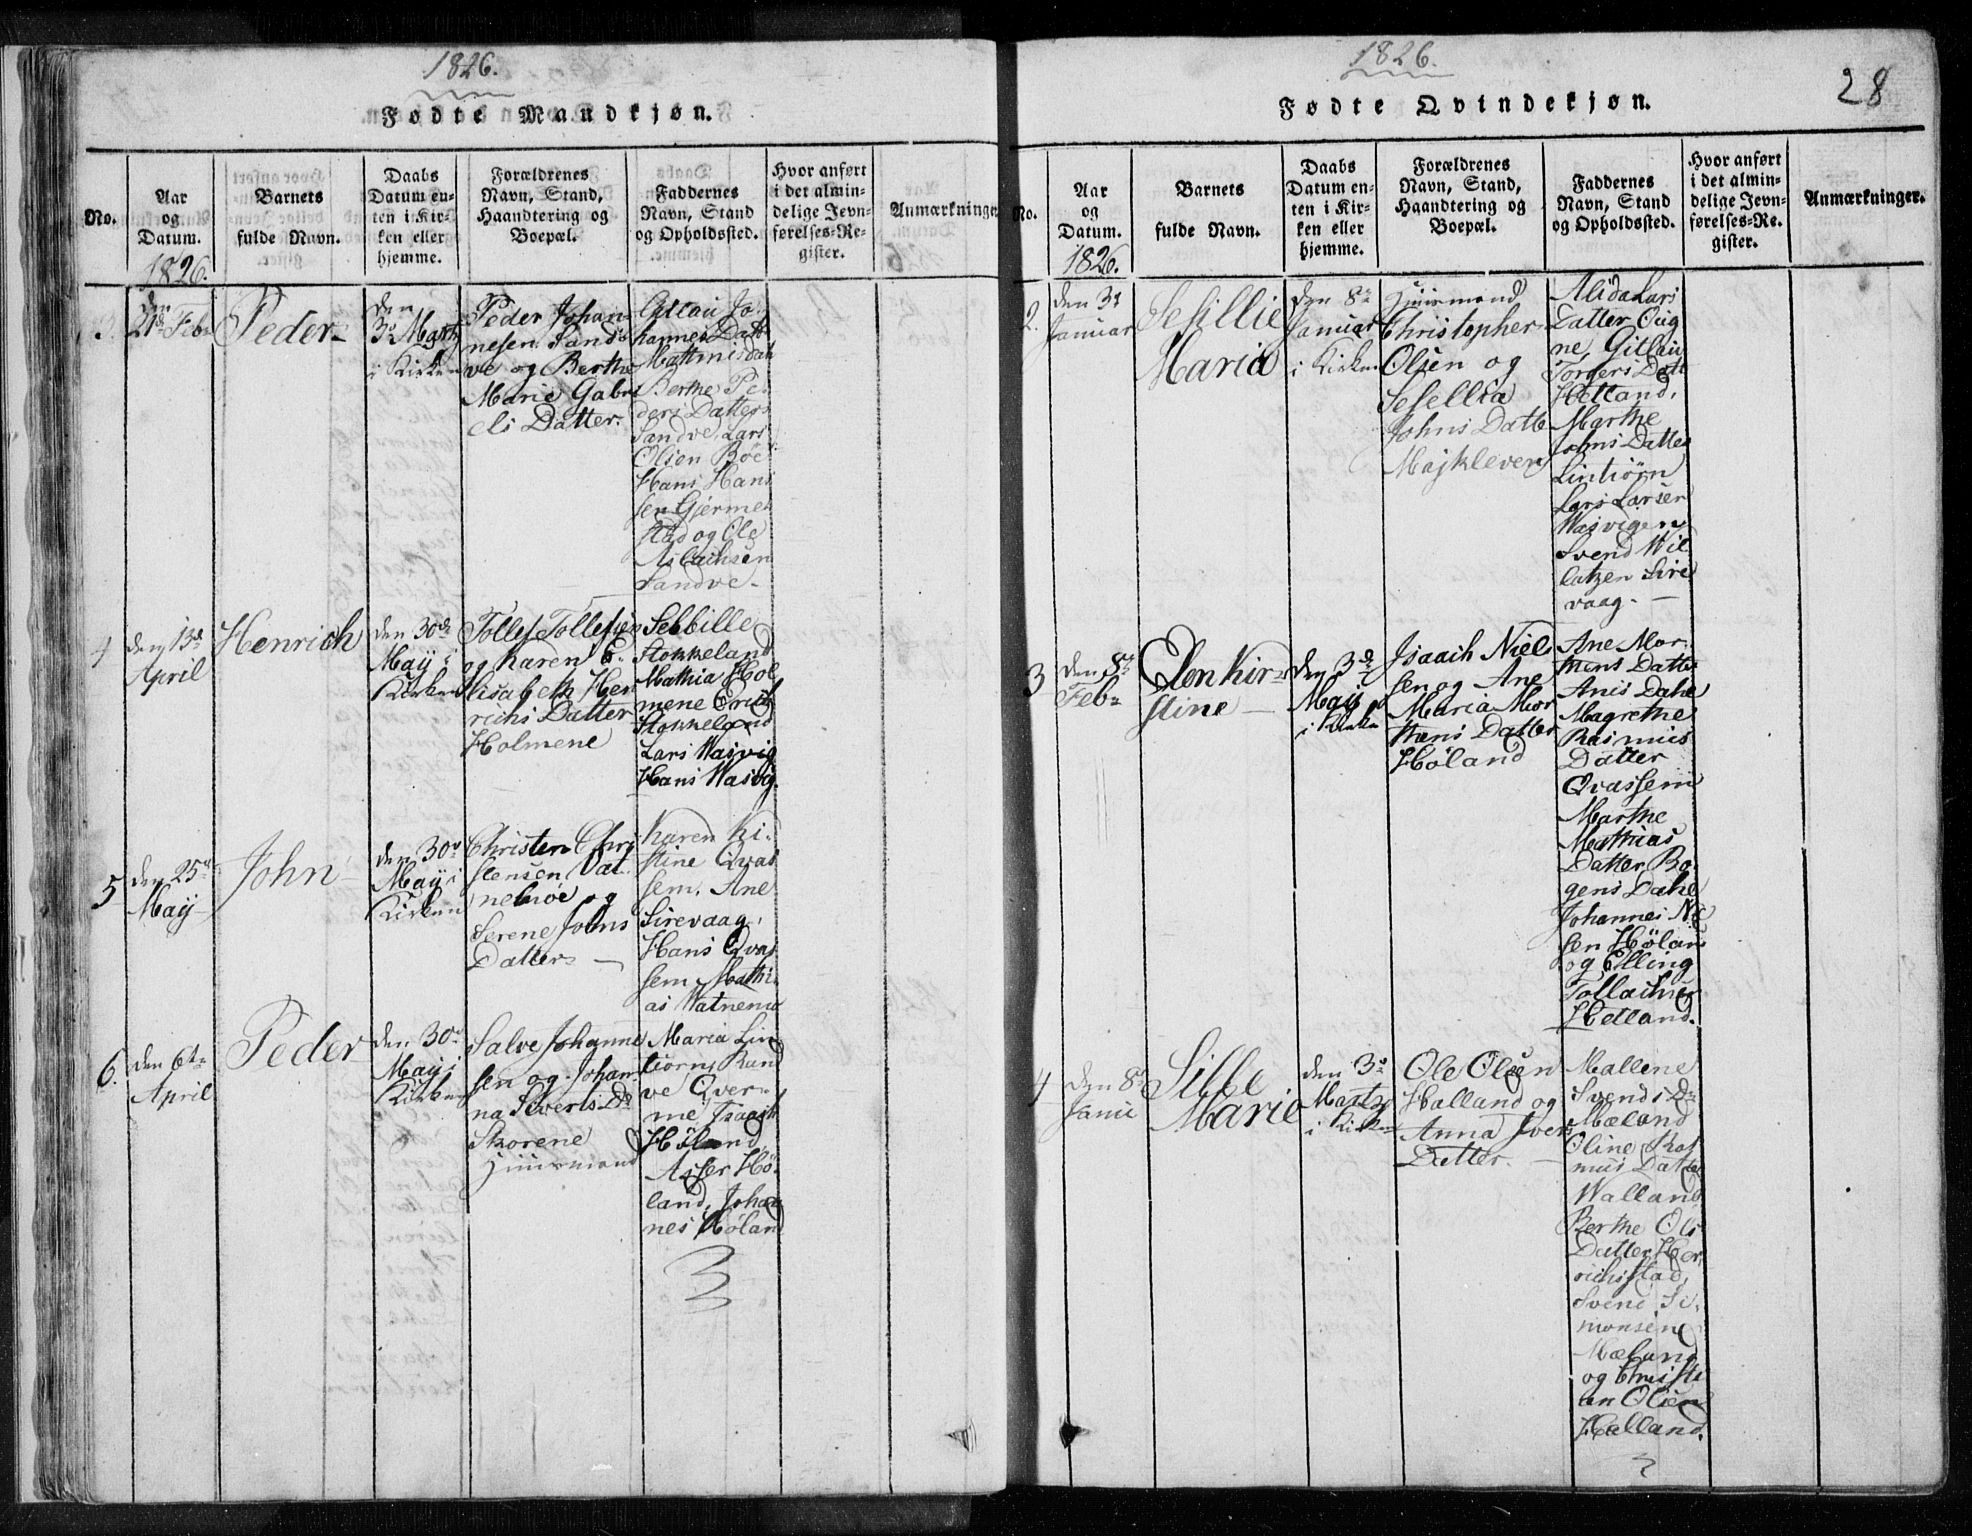 1826.
Fødte Mandkjøn.
No.
Aar
og
Datum.
1826.
Barnets
fulde Navn.
Daabs
Datum en-
ten i Kir-
ken eller
hjemme.
Forældrenes
Navn, Stand,
Haandtering og
Boepæl.
Faddernes
Navn, Stand
og Opholdssted.
Hvor anført
i det almin-
delige Jevn-
førelses-Re-
gister.
Anmærkninger
3.
den
21de Feb
Peder
den
3de Martz
i Kirken
Peder Johan-
nesen Sand-
ve og Berthe
Marie Gabri
eli Datter.
Gitlau Jo-
hannes Datt
Berthe Pe-
ders Datter
Sandve, Lars
Olsen Böe
Hans Hans
sen Gjermes
stad og Ole
Aslachsen
Sandve
4
den 13de
April
Henrich
den 30de
May i
Kirken
Tollef Tollefsen
og Karen E-
lisabeth Hen
richs Datter
Holmene
Sebbille
Stokkeland
Mathia Hol
mene Erich
Stokkeland
Lars Wasvig
Hans Wasvig.
5
den 25de
May
John
den 30de
May i
Kirken
Christen Chri
stensen Vat-
nemoe og
Serene Johns
Datter
Karen Ki-
stine Qvas
sem, Ane
Sirevaag,
Hans Qvas
sem, Mathi
as Watnemo
6.
den 6te
April
Peder
den 30de
May i
Kirken
Salve Johanne
sen og Johan-
na Siverts Dr
Skorene
Huusmand
Maria Lin
tiörn, Ran
ve Qver-
me, Isaach
Höland
Asser Hö-
land, Johan
nes Höland
1826.
28
Fødte Qvindekjøn.
No.
Aar
og
Datum.
1826.
Barnets
fulde Navn.
Daabs
Datum en-
ten i Kir-
ken eller
hjemme.
Forældrenes
Navn, Stand,
Haandtering og
Boepæl.
Faddernes
Navn, Stand
og Opholdssted.
Hvor anført
i det almin-
delige Jevn-
førelses-Re-
gister.
Anmærkninger.
2.
den 3de
Januar
Sesillie
Maria
den 8de
Januar
i Kirken
Huusmand
Christopher
Olsen og
Sesellia
Johns Datte
Alida Lars
Datter Oug
ne, Gitlau
Torgers Datt
Hetland,
Marthe
Johns Datter
Lintiörn
Lars Larsen
Wasvigen
Svend Wil
latzen Sire
vaag.
3
den 8de
Feb
Elen Kir-
stine
den 3de
May
i Kirken
Isaach Niels
sen og Ane
Maria Mor
thens Datter
Höland
Ane Mor-
thens Datter
Anis Dahl
Magrethe
Rasmus
Datter
Qvassem
Marthe
Mathias
Datter, Ro-
gens Dahl
Johannes Nil
sen Höland
og Elling
Tollachsen
Hetland.
4
den 8de
Janu
Sille
Marie
den 3de
Martz
i Kirken
Ole Olsen
Halland og
Anna Ivers
Datter.
Mallene
Svends Dr
Mæland
Oline Ras
mus Datter
Walland
Berthe Ols
Datter Hen
richstad,
Svend Si-
monsen
Mæland
og Christi
an Olsen
Halland.